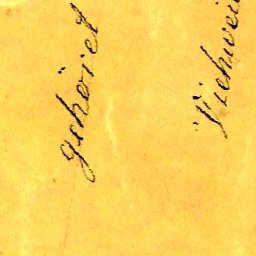 gehöret
Viehwei